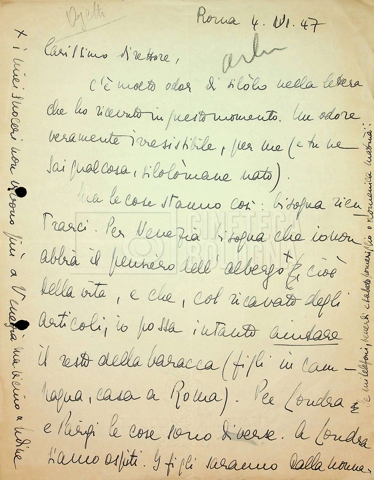 Roma 4. VI. 47
Carissimo direttore,
c'è molto odor di silòlo nella lettera
che ho ricevuto in questo momento. Un odore
veramente irresistibile, per me (e tu ne
sai qualcosa, silolòmane nato).
Ma le cose stanno così: bisogna rien
trarci. Per Venezia bisogna che io non
abbia il pensiero dell'albergo + e cioè
della vita, e che, col ricavato degli
articoli, io possa intanto aiutare
il resto della baracca (figli in cam-
pagna, casa a Roma). Per Londra
e Parigi le cose sono diverse. A Londra
siamo ospiti. I figli saranno dalla nonna.
x i miei suoceri non vivono più a Venezia ma vicino a Udine
CINETECA